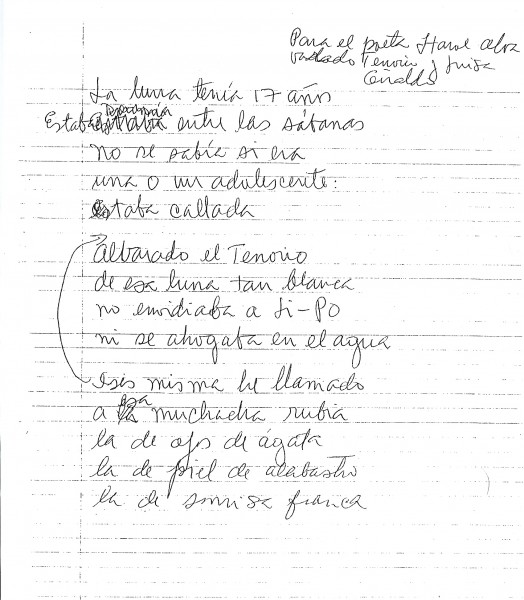 Para el poeta Harol Alva
rado Tenorio y Luisa
La luna tenía 17 años
Estaba entre las sábanas
no se sabía si era
una o un adolescente:
Estaba callada
Albarado el Tenorio
de esa luna tan blanca
no envidiaba a Li-PO
ni se ahogaba en el agua
Isis misma he llamado
a esa muchacha rubia
la de ojos de ágata
la de piel de alabastro
la de sonrisa franca